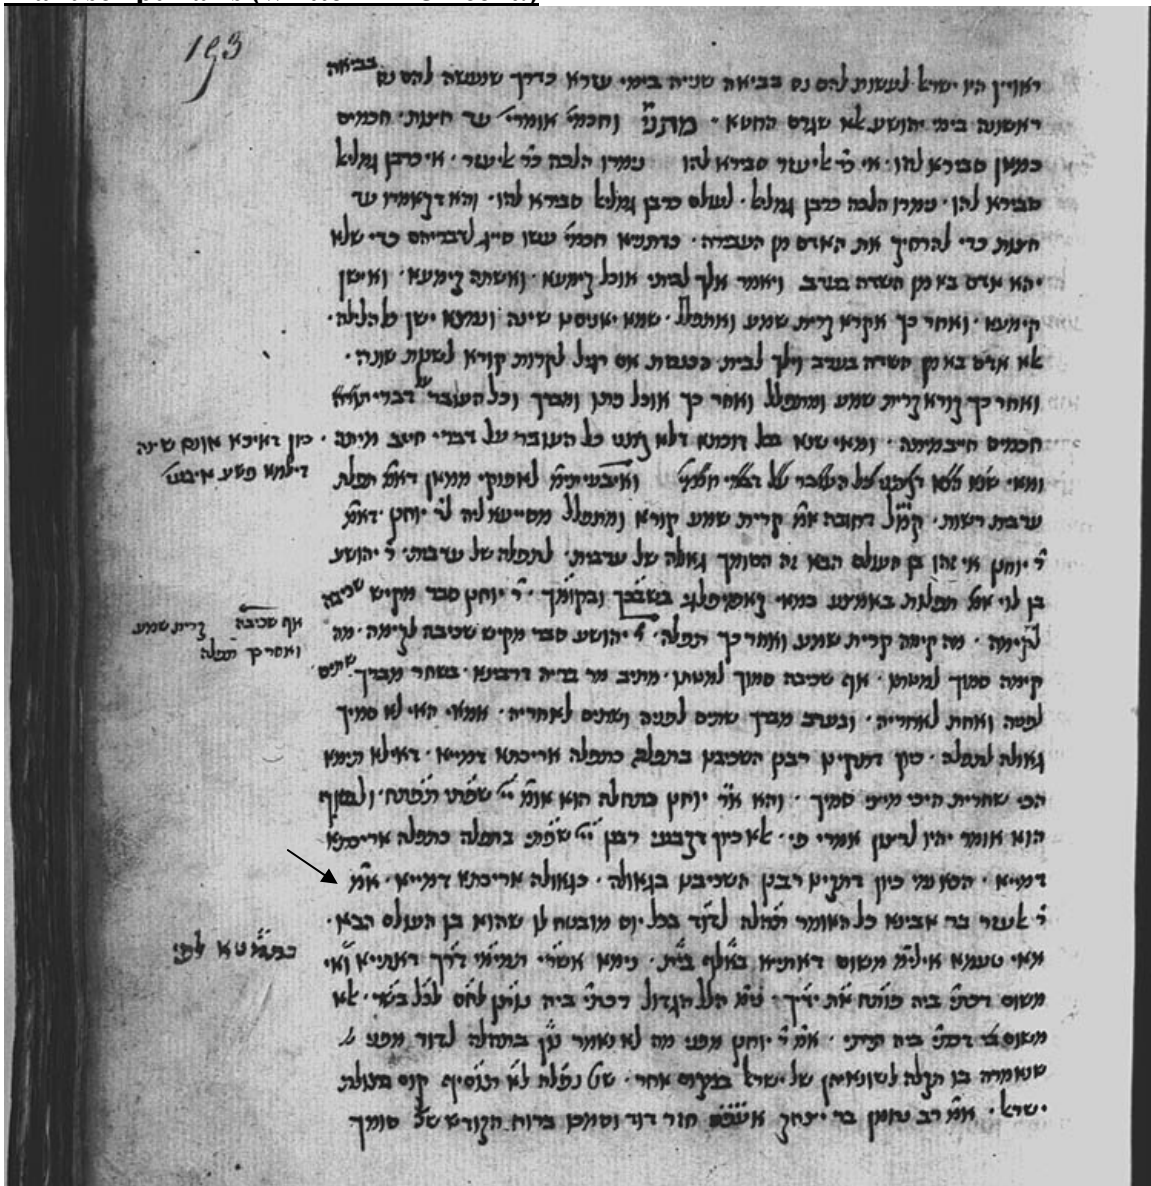 193
ראויין היו ישרא' לעשות להם נס בביאה שנייה בימי עזרא כדרך שנעשה להם נס בביאה
ראשונה בימי יהושע אלא שגרם החטא · מתני' וחכמי' אומרי' עד חצות · חכמים
כמאן סבירא להו · אי כר' אליעזר סבירא להו נימרו הלכה כר' אליעזר · אי כרבן גמליא'
סבירא להו · נימרו הלכה כרבן גמליא' · לעולם כרבן גמליא' סבירא להו · והא דקאמרו עד
חצות כדי להרחיק את האדם מן העבירה · כדתניא חכמי' עשו סייג לדבריהם כדי שלא
יהא אדם בא מן השדה בערב ויאמר אלך לביתי אוכל קימעא · ואשתה קימעא · ואישן
קימעא · ואחר כך אקרא קרית שמע ואתפלל · שמא יאנסנו שינה ונמצא ישן כל הלילה ·
אלא אדם בא מן השדה בערב וילך לבית הכנסת אם רגיל לקרות קורא לשנות שונה ·
ואחר כך קורא קרית שמע ומתפלל ואחר כך אוכל פתו ומברך וכל העובר על דברי
חכמים חייב מיתה · ומאי שנא בכל דוכתא דלא קתני כל העובר על דברי חייב מיתה · כיון דאיכא אונס שינה
דילמא פשע
ומאי שנא הכא דקתני כל העובר על דברי חכמי' ואיבעי' לאפוקי ממאן דאמ' תפלת
ערבית רשות · קמ"ל דחובה אמ' קרית שמע קורא ומתפלל מסייעא ליה לר' יוחנן · דאמ'
ר' יוחנן אי זהו בן העולם הבא זה הסומך גאולה של ערבית · לתפלה של ערבית · ר' יהושע
בן לוי אמ' תפלות באמצע במאי קאמיפלגי בשכבך ובקומך · ר' יוחנן סבר מקיש שכיבה
לקימה · מה קימה קרית שמע ואחר כך תפלה · ר' יהושע סבר מקיש שכיבה לקימה · מה
אף שכיבה קרית שמע
ואחר כך תפלה
קימה סמוך למטתו · אף שכיבה סמוך למטתו · מתיב מר בריה דרבינא · בשחר מברך שתים
לפניה ואחת לאחריה · ובערב מברך שתים לפניה ושתים לאחריה · אמאי האי לא סמיך
גאולה לתפלה · כיון דתקינו רבנן השכיבנו בתפלה כתפלה אריכתא דמייא · דאילא תימא
הכי שחרית היכי מצי סמיך · והא א"ר יוחנן בתחלה הוא אומ' יי' שפתי תפתח · ולבסוף
הוא אומר יהיו לרצון אמרי פי · אלא כיון דקבעי רבנן יי' שפתי בתפלה כתפלה אריכתא
דמייא · הכא נמי כיון דתקינו רבנן השכיבנו בגאולה · כגאולה אריכתא דמייא · אמ'
ר' אלעזר בר אבינא כל האומר תהלה לדוד בכל יום מובטח לו שהוא בן העולם הבא ·
מאי טעמא אילימ' משום דאתיא באלף בית · נימא אשרי תמימי דרך דאתייא
משום דכתי' ביה פותח את ידיך · נימ' הלל הגדול דכתי' ביה נותן לחם לכל בשר · אלא
משום דכתי' ביה תרתי · אמ' ר' יוחנן מפני מה לא נאמר נון בתהלה לדוד מפני
שנאמרה בו תקלה לשונאיהן של ישרא' במקום אחר · שנ' נפלה לא תוסיף קום בתולת
ישרא' · אמ' רב נחמן בר יצחק חזר דוד וסמכן ברוח הקודש שנ' סומך